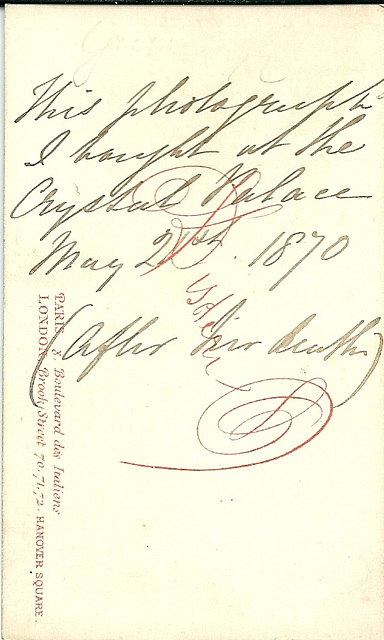 This photograph
I bought at the
Crystal Palace
May 21st. 1870
(After his death)
Disdéri
PARIS. 8 Boulevard des Italiens
LONDON. Brook Street 70.71.72. HANOVER SQUARE.